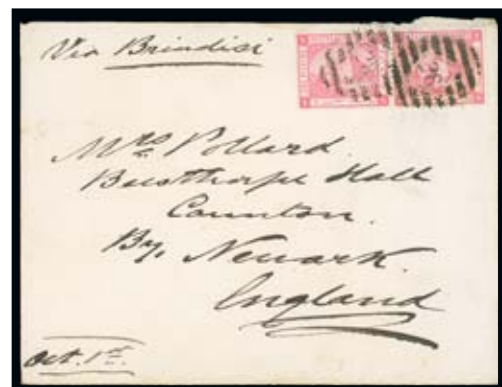 Via Brindisi
Mrs. Pollard.
Besthorpe Hall
Caunton.
By, Newark.
England
Oct. 1st.